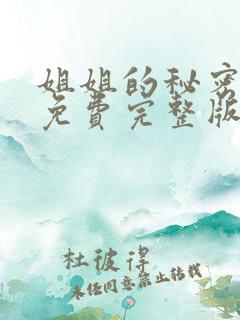 姐姐的秘密
免費完整版
杜彼得
未任同意禁止转载